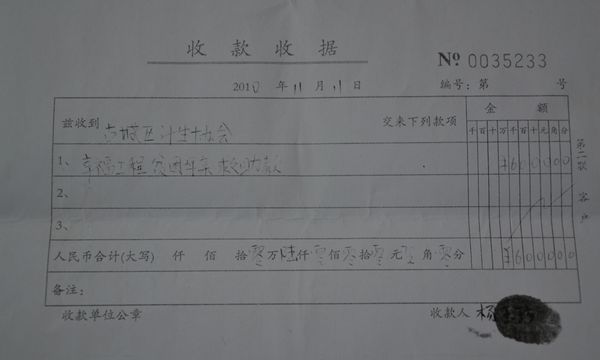 收款收据
№ 0035233
2010 年 11 月 11 日 编号：第 号
兹收到 古城区计生协会 交来下列款项 金额
千 百 十 万 千 百 十 元 角 分
1、幸福工程贫困母亲救助款 ¥ 6 0 0 0 0 0
2、
3、
人民币合计(大写) 仟 佰 拾 零 万 陆 仟 零 佰 零 拾 零 元 零 角 零 分 ¥ 6 0 0 0 0 0
备注：
收款单位公章 收款人 杨
第二联
客户